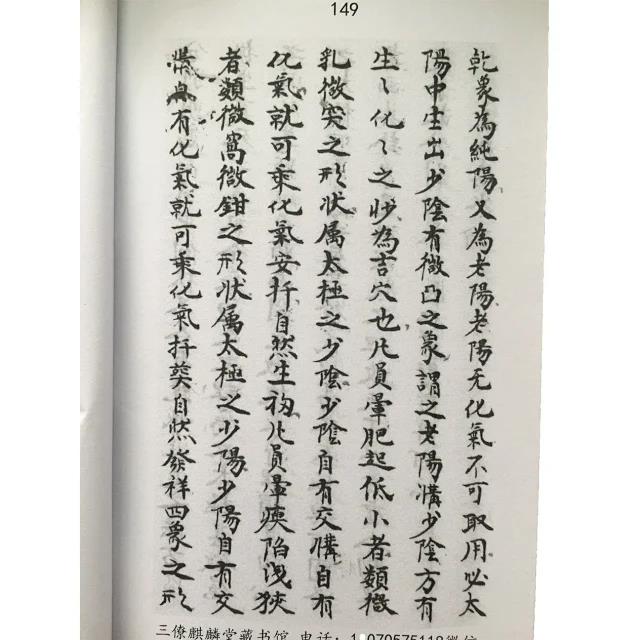 149
乾象為純陽又為老陽老陽无化氣不可取用必太
陽中生出少陰有微凸之象謂之老陽媾少陰方有
生〻化〻之妙為吉穴也凡員暈肥起低小者類微
乳微突之形状属太極之少陰少陰自有交媾自有
化氣就可乘化氣安扦自然生初凡員暈瘐陷浅狹
者類微窩微鉗之形状属太極之少陽少陽自有交
有化氣就可乘化氣扦葬自然發祥四象之形
三僚麒麟堂藏书馆 电话：1 070575118微信